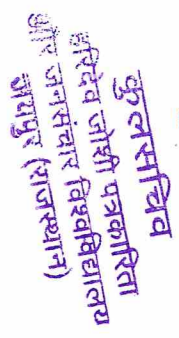 कुलसचिव
हरिदेव जोशी पत्रकारिता
और जनसंचार विश्वविद्यालय
जयपुर (राजस्थान)